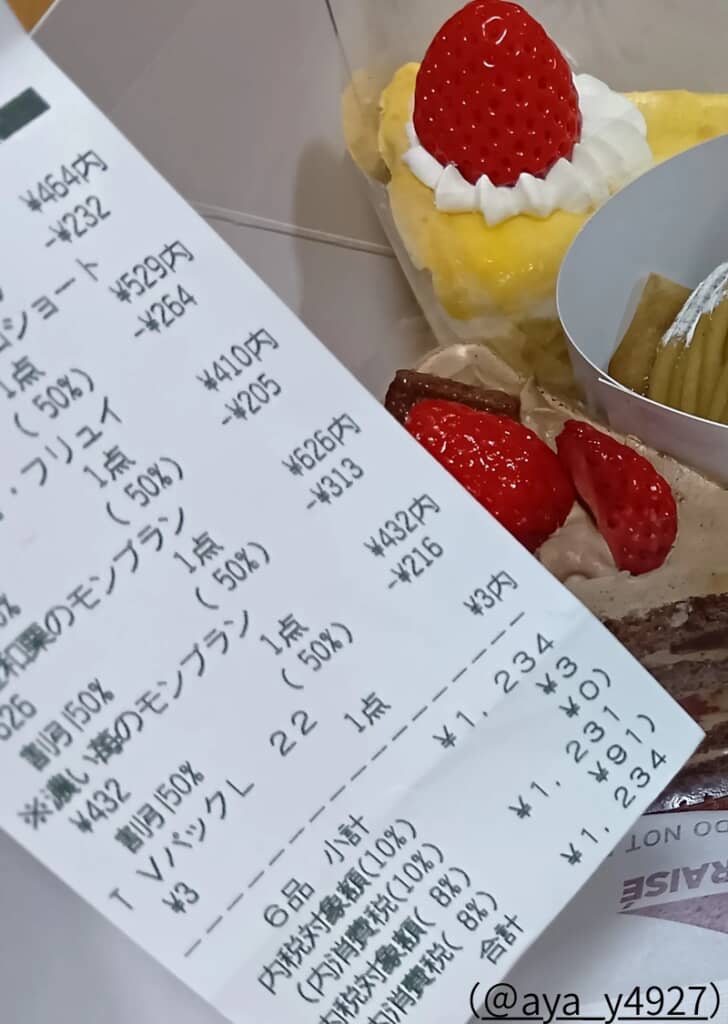 ¥464内
-¥232
ショート
¥529内
1点
(50%)
-¥264
・フリュイ
¥410内
1点
(50%)
-¥205
和栗のモンブラン
¥626内
1点
割引50%
(50%)
-¥313
※濃い苺のモンブラン
¥432
1点
¥432内
割引50%
(50%)
-¥216
TVパックL 22
¥3
1点
¥3内
6品 小計
¥1,234
内税対象額(10%)
¥3
(内消費税(10%)
¥0)
内税対象額( 8%)
¥1,231
内消費税( 8%)
¥91)
合計
¥1,234
DO NOT
RAISÉ
(@aya_y4927)